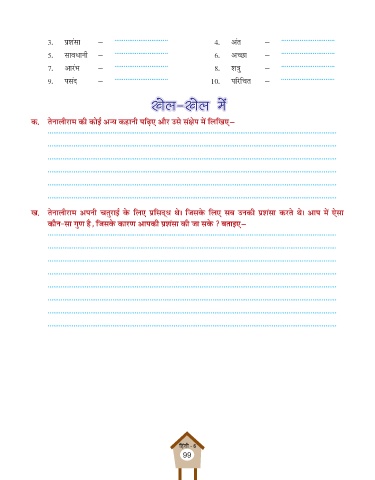 3. प्रशंसा – 4. अंत –
5. सावधानी – 6. अच्छा –
7. आरंभ – 8. शत्रु –
9. पसंद – 10. परिचित –
खेल-खेल में
क. तेनालीराम की कोई अन्य कहानी पढ़िए और उसे संक्षेप में लिखिए–
ख. तेनालीराम अपनी चतुराई के लिए प्रसिद्ध थे। जिसके लिए सब उनकी प्रशंसा करते थे। आप में ऐसा
कौन-सा गुण है, जिसके कारण आपकी प्रशंसा की जा सके ? बताइए–
हिंदी - 6
99